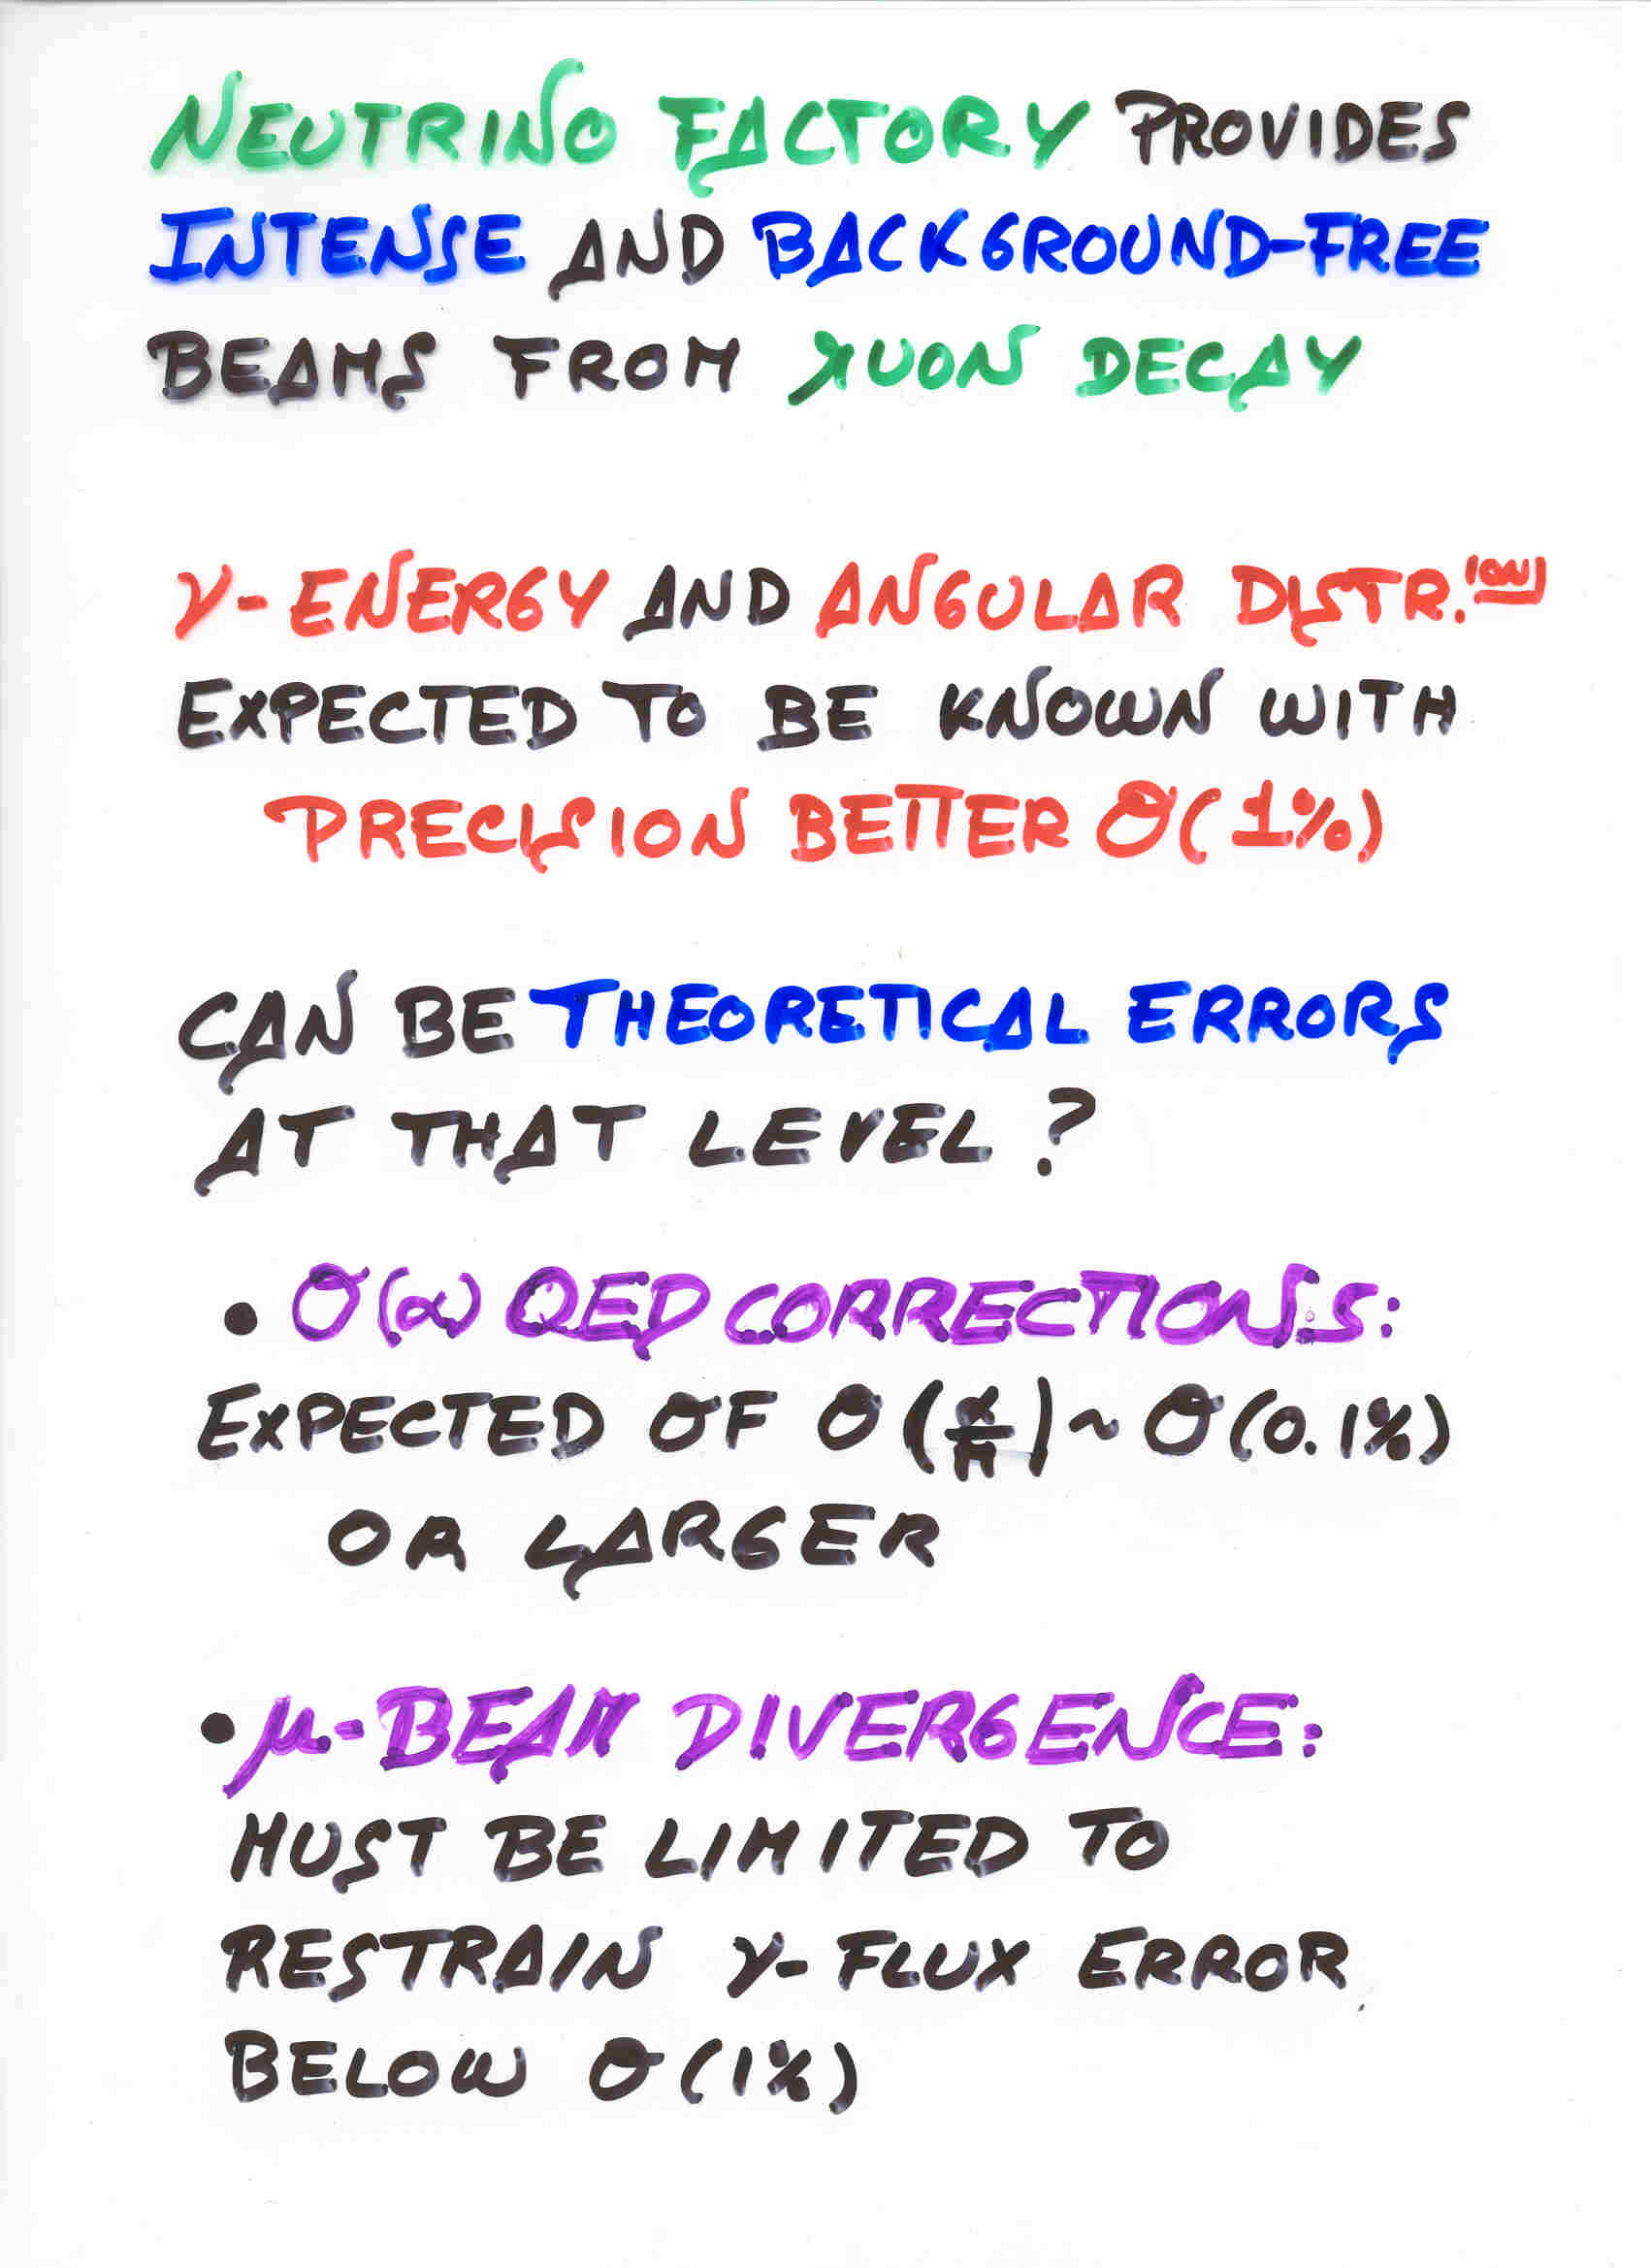 NEUTRINO FACTORY PROVIDES
INTENSE AND BACKGROUND-FREE
BEAMS FROM MUON DECAY
ν-ENERGY AND ANGULAR DISTR.ION
EXPECTED TO BE KNOWN WITH
PRECISION BETTER O(1%)
CAN BE THEORETICAL ERRORS
AT THAT LEVEL?
• O(α) QED CORRECTIONS:
EXPECTED OF O(α/π) ~ O(0.1%)
OR LARGER
• μ-BEAM DIVERGENCE:
MUST BE LIMITED TO
RESTRAIN ν-FLUX ERROR
BELOW O(1%)